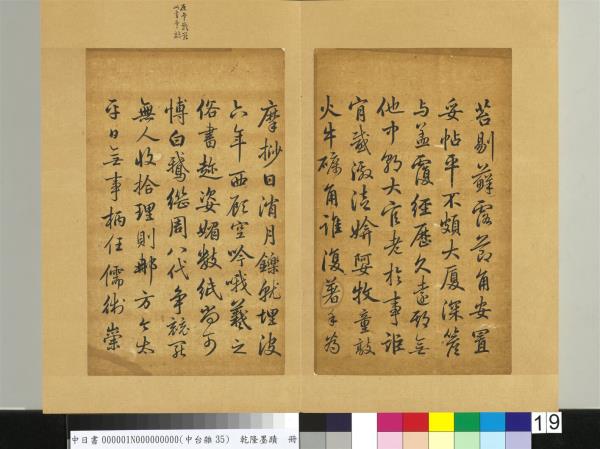 苔剔蘚露節角安置
妥帖平不頗大厦深簷
与盖覆經歷久遠期無
他中朝大官老於事詎
肯感激媕娿牧童敲
火牛礪角誰復著手為
摩挲日消月鑠就埋没
六年西顧空吟哦羲之
俗書趁姿媚數紙尚可
博白鵝繼周八代争罷
無人收拾理則那方今太
平日無事柄任儒術崇
中日書 000001N000000000(中台雜 35) 乾隆墨蹟 冊
19